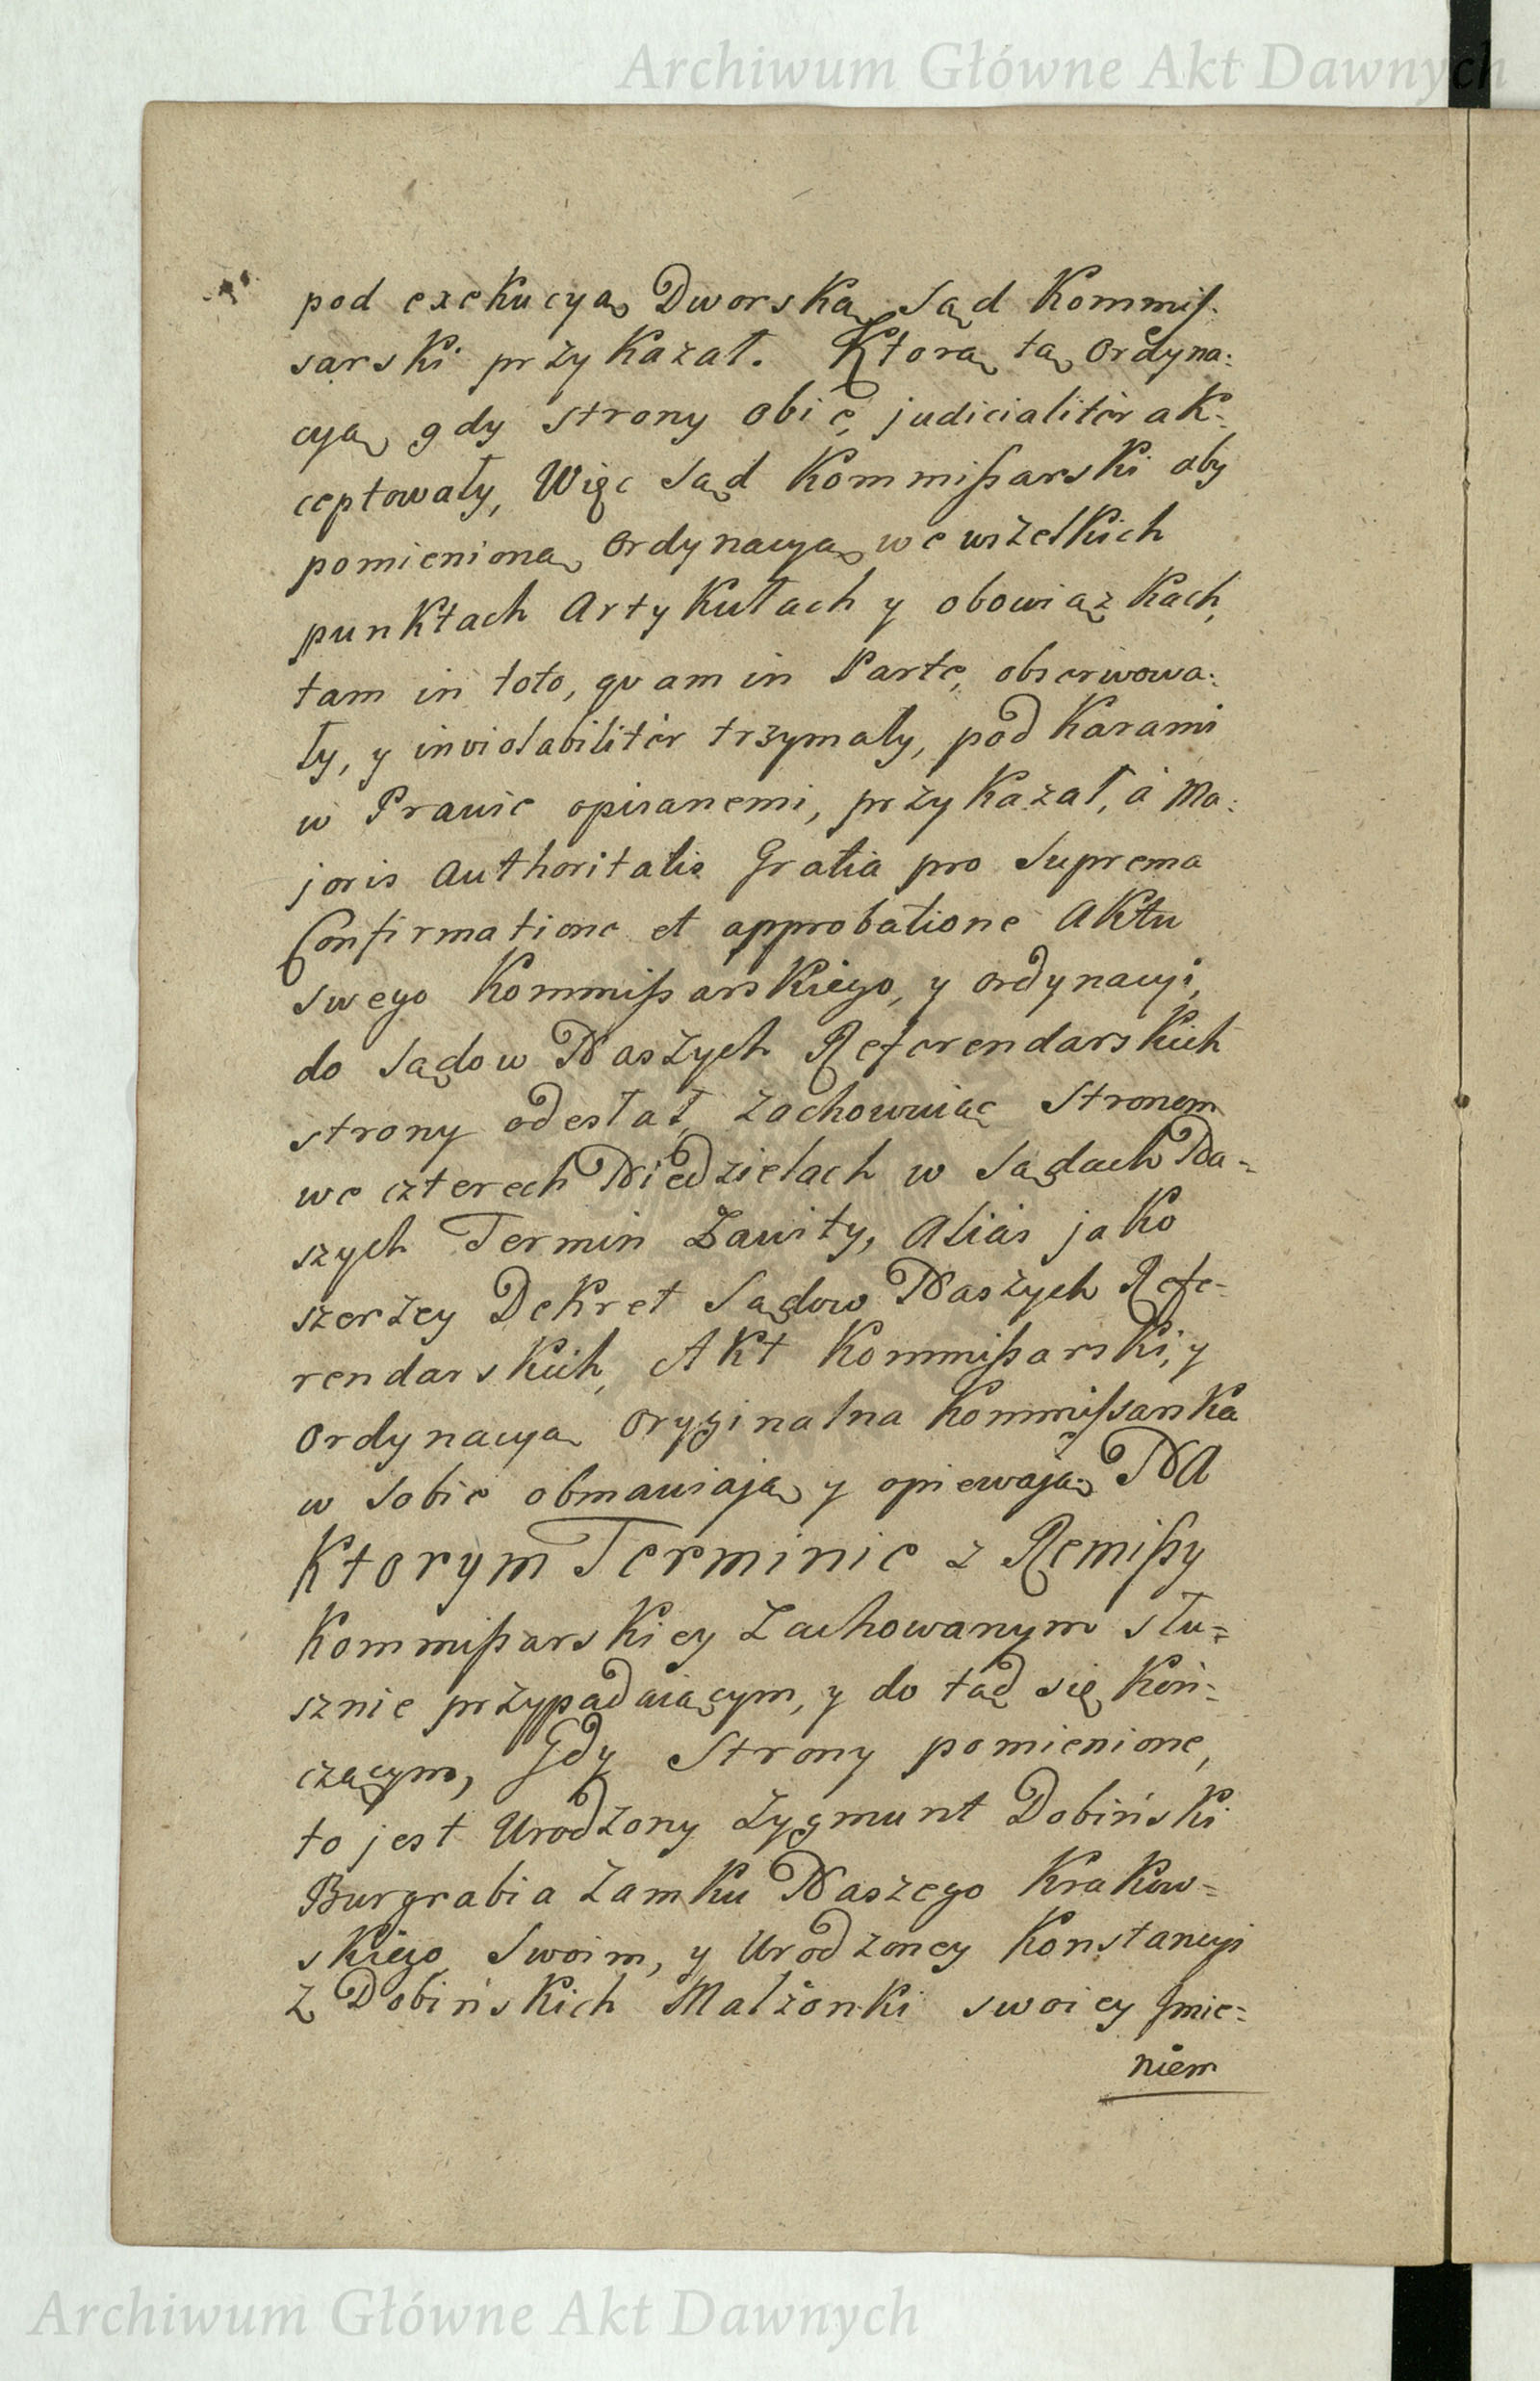 Archiwum Główne Akt Dawnych
pod exekucyą Dworską Sąd Kommis-
sarski przykazał. Ktorą tą Ordyna-
cyą gdy strony obie judicialitèr ak-
ceptowały, Więc Sąd Kommißarski aby
pomienioną Ordynacyą we wszelkich
punktach Artykułach y obowiązkach,
tam in toto, quam in Parte, obserwowa-
ły, y inviolabilitèr trzymały, pod Karami
w Prawie opisanemi, przykazał, à Ma-
joris Authoritatis Gratia pro Suprema
Confirmatione et approbatione Aktu
swego Kommißarskiego, y Ordynacyi,
do Sądow Naszych Referendarskich
strony odesłał, zachowuiąc Stronom
we czterech Niedzielach w Sądach Na-
szych Termin Zawity, Aliàs jako
szerzey Dekret Sądow Naszych Refe-
rendarskich, Akt Kommißarski, y
Ordynacya Oryginalna Kommißarska
w Sobie obmawiaią y opiewają. NA
Ktorym Terminie z Remißy
Kommißarskiey Zachowanym słu-
sznie przypadaiącym, y do tąd się koń-
czącym, Gdy Strony pomienione,
to jest Urodzony Zygmunt Dobiński
Burgrabia Zamku Naszego Krakow-
skiego Swoim, y Urodzoney Konstancyi
Z Dobińskich Malżonki swoiey Jmie-
niem
Archiwum Główne Akt Dawnych